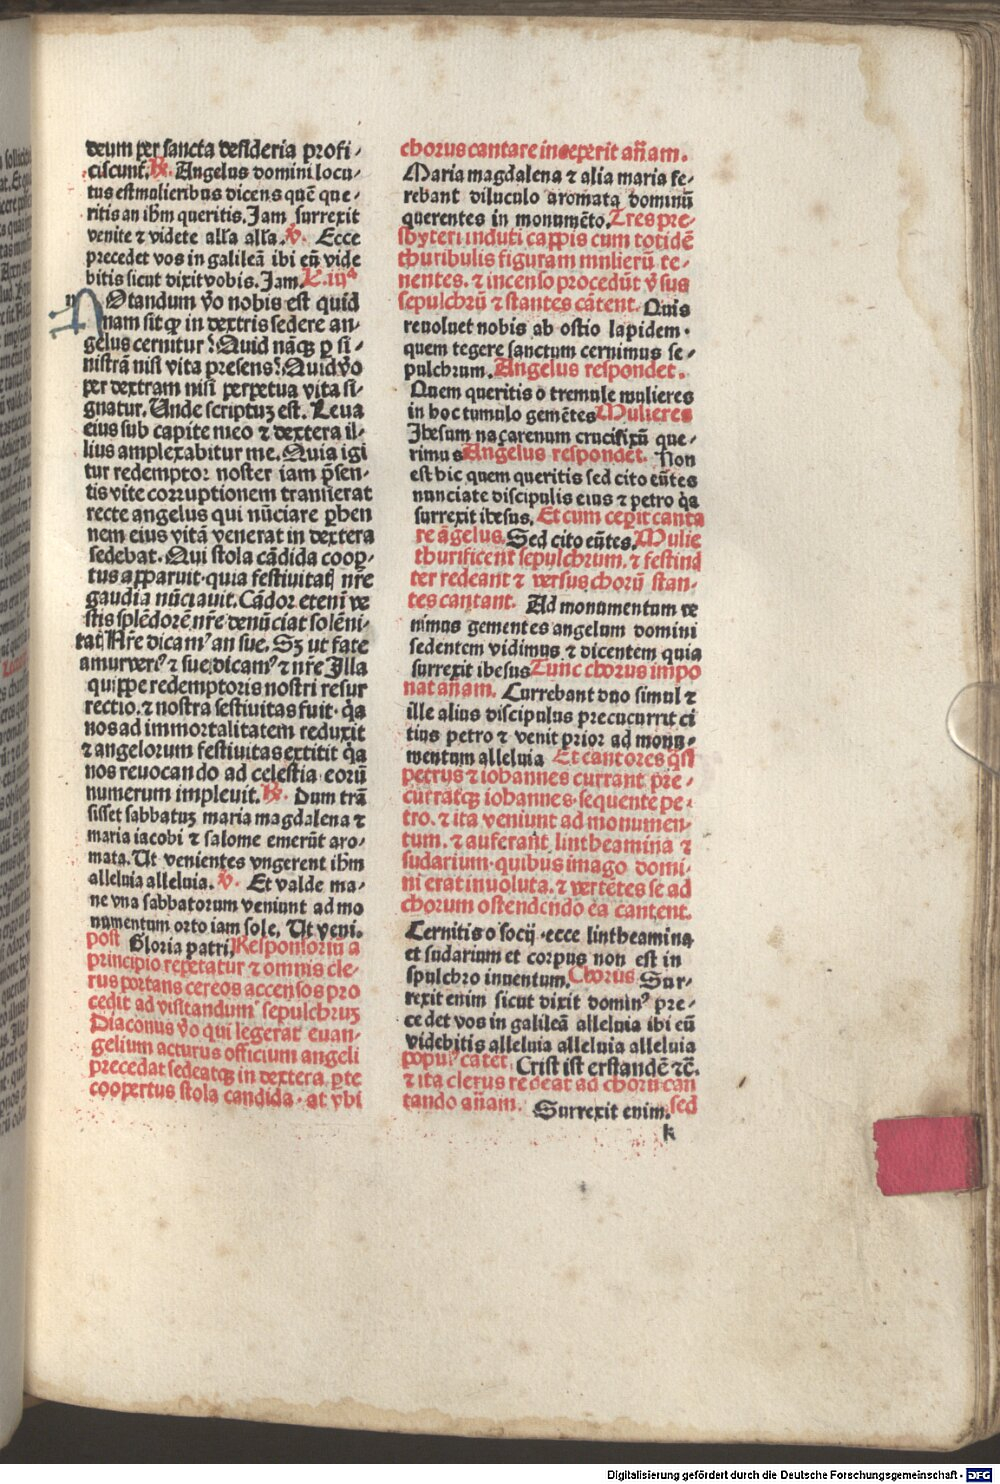 deum per sancta desideria profi-
ciscunt̃. ℟. Angelus domini locu-
tus est mulieribus dicens quē que-
ritis an ihm queritis. Jam surrexit
venite ⁊ videte alľa alľa. ℣. Ecce
precedet vos in galileā ibi eū vide
bitis sicut dixit vobis. Jam. L. iijᵃ
NOtandum v̆o nobis est quid
nam sit ꝙ in dextris sedere an-
gelus cernitur? Quid nāqꝫ ꝑ si-
nistrā nisi vita presens? Quid v̆o
per dextram nisi perpetua vita si-
gnatur. Unde scriptuꝫ est. Leua
eius sub capite meo ⁊ dextera il-
lius amplexabitur me. Quia igi
tur redemptor noster iam p̄sen-
tis vite corruptionem transierat
recte angelus qui nūciare ꝑhen
nem eius vitā venerat in dextera
sedebat. Qui stola cādida coop-
tus apparuit. quia festiuitatꝭ nr̄e
gaudia nūciauit. Cādor eteni ve
stis splēdorē nr̄e denūciat solēni-
tatꝭ Nr̄e dicamꝰ an sue. Sꝫ ut fate
amur verꝰ ⁊ sue dicamꝰ ⁊ nr̄e Illa
quippe redemptoris nostri resur
rectio. ⁊ nostra festiuitas fuit. q̄a
nos ad immortalitatem reduxit
⁊ angelorum festiuitas extitit q̄a
nos reuocando ad celestia eorū
numerum impleuit. ℟. Dum trā
sisset sabbatuꝫ maria magdalena ⁊
maria iacobi ⁊ salome emerūt aro-
mata. Ut venientes vngerent ihm
alleluia alleluia. ℣. Et valde ma-
ne vna sabbatorum veniunt ad mo
numentum orto iam sole. Ut veni.
post Gloria patri. Responsoriū a
principio repetatur ⁊ omnis cle-
rus portans cereos accensos pro
cedit ad visitandum sepulchruꝫ
Diaconus v̆o qui legerat euan-
gelium acturus officium angeli
precedat sedeatqꝫ in dextera pte
coopertus stola candida. at vbi
chorus cantare inceperit an̄am.
Maria magdalena ⁊ alia maria fe-
rebant diluculo aromata dominū
querentes in monumēto. Tres pre-
sbyteri induti cappis cum totidē
thuribulis figuram mulierū te-
nentes. ⁊ incenso procedūt v̆sus
sepulchrū ⁊ stantes cātent. Quis
reuoluet nobis ab ostio lapidem.
quem tegere sanctum cernimus se-
pulchrum. Angelus respondet.
Quem queritis o tremule mulieres
in hoc tumulo gemētes Mulieres
Jhesum naçarenum crucifixū que-
rimus Angelus respondet. Non
est hic quem queritis sed cito eūtes
nunciate discipulis eius ⁊ petro q̄a
surrexit ihesus. Et cum ceperit canta
re āgelus. Sed cito eūtes. Mulie
thurificent sepulchrum. ⁊ festinā
ter redeant ⁊ versus chorū stan-
tes cantant. Ad monumentum ve
nimus gementes angelum domini
sedentem vidimus ⁊ dicentem quia
surrexit ihesus Tunc chorus impo
nat an̄am. Currebant duo simul ⁊
ille alius discipulus precucurrit ci
tius petro ⁊ venit prior ad monu-
mentum alleluia Et cantores q̄si
petrus ⁊ iohannes currant pre-
curratqꝫ iohannes sequente pe-
tro. ⁊ ita veniunt ad monumen-
tum. ⁊ auferant lintheamina ⁊
sudarium. quibus imago domi-
ni erat inuoluta. ⁊ vertētes se ad
chorum ostendendo ea cantent.
Cernitis o socij. ecce lintheamina
et sudarium et corpus non est in
spulchro inuentum. Chorus. Sur-
rexit enim sicut dixit dominꝰ pre-
cedet vos in galileā alleluia ibi eū
videbitis alleluia alleluia alleluia
populꝰ cātet. Crist ist erstandē ⁊c̄.
⁊ ita clerus redeat ad chorū can
tando an̄am. Surrexit enim. sed
k
Digitalisierung gefördert durch die Deutsche Forschungsgemeinschaft - DFG